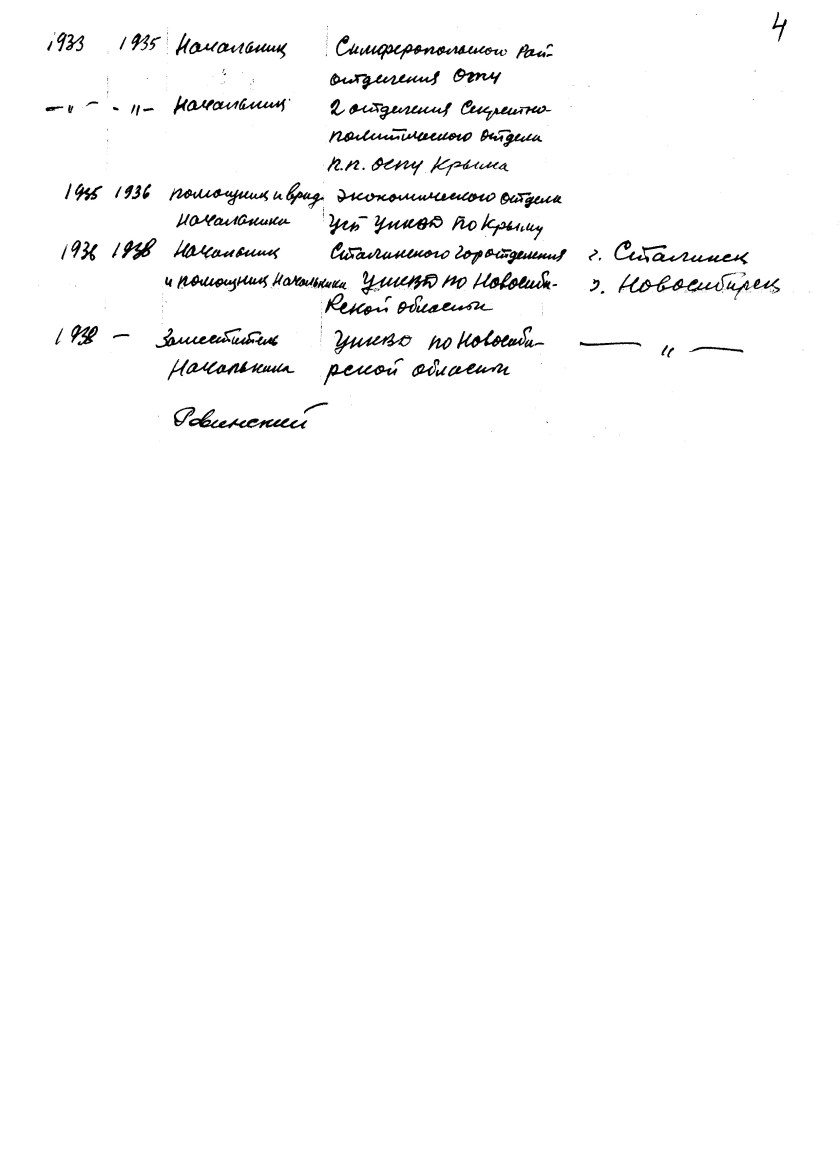 4
1933 1935 Начальник Симферопольского Рай-
отделения ОГПУ
—"— -"- Начальник 2 отделения Секретно-
политического отдела
п.п. ОГПУ Крыма
1935 1936 помощник и врид. экономического отдела
Начальника УГБ УНКВД по Крыму
1936 1938 Начальник Сталинского Горотделения г. Сталинск
и помощник Начальника УНКВД по Новосиби- г. Новосибирск
рской области
1938 — Заместитель УНКВД по Новосиби- —— " ——
Начальника рской области
Ровинский